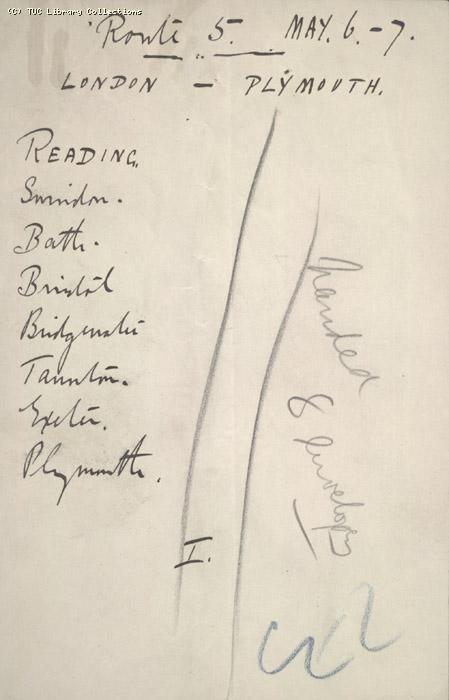 (C) TUC Library Collections
Route 5. MAY. 6.-7.
LONDON — PLYMOUTH.
READING.
Swindon.
Bath.
Bristol
Bridgwater
Taunton.
Exeter.
Plymouth.
handed
8 envelops
I.